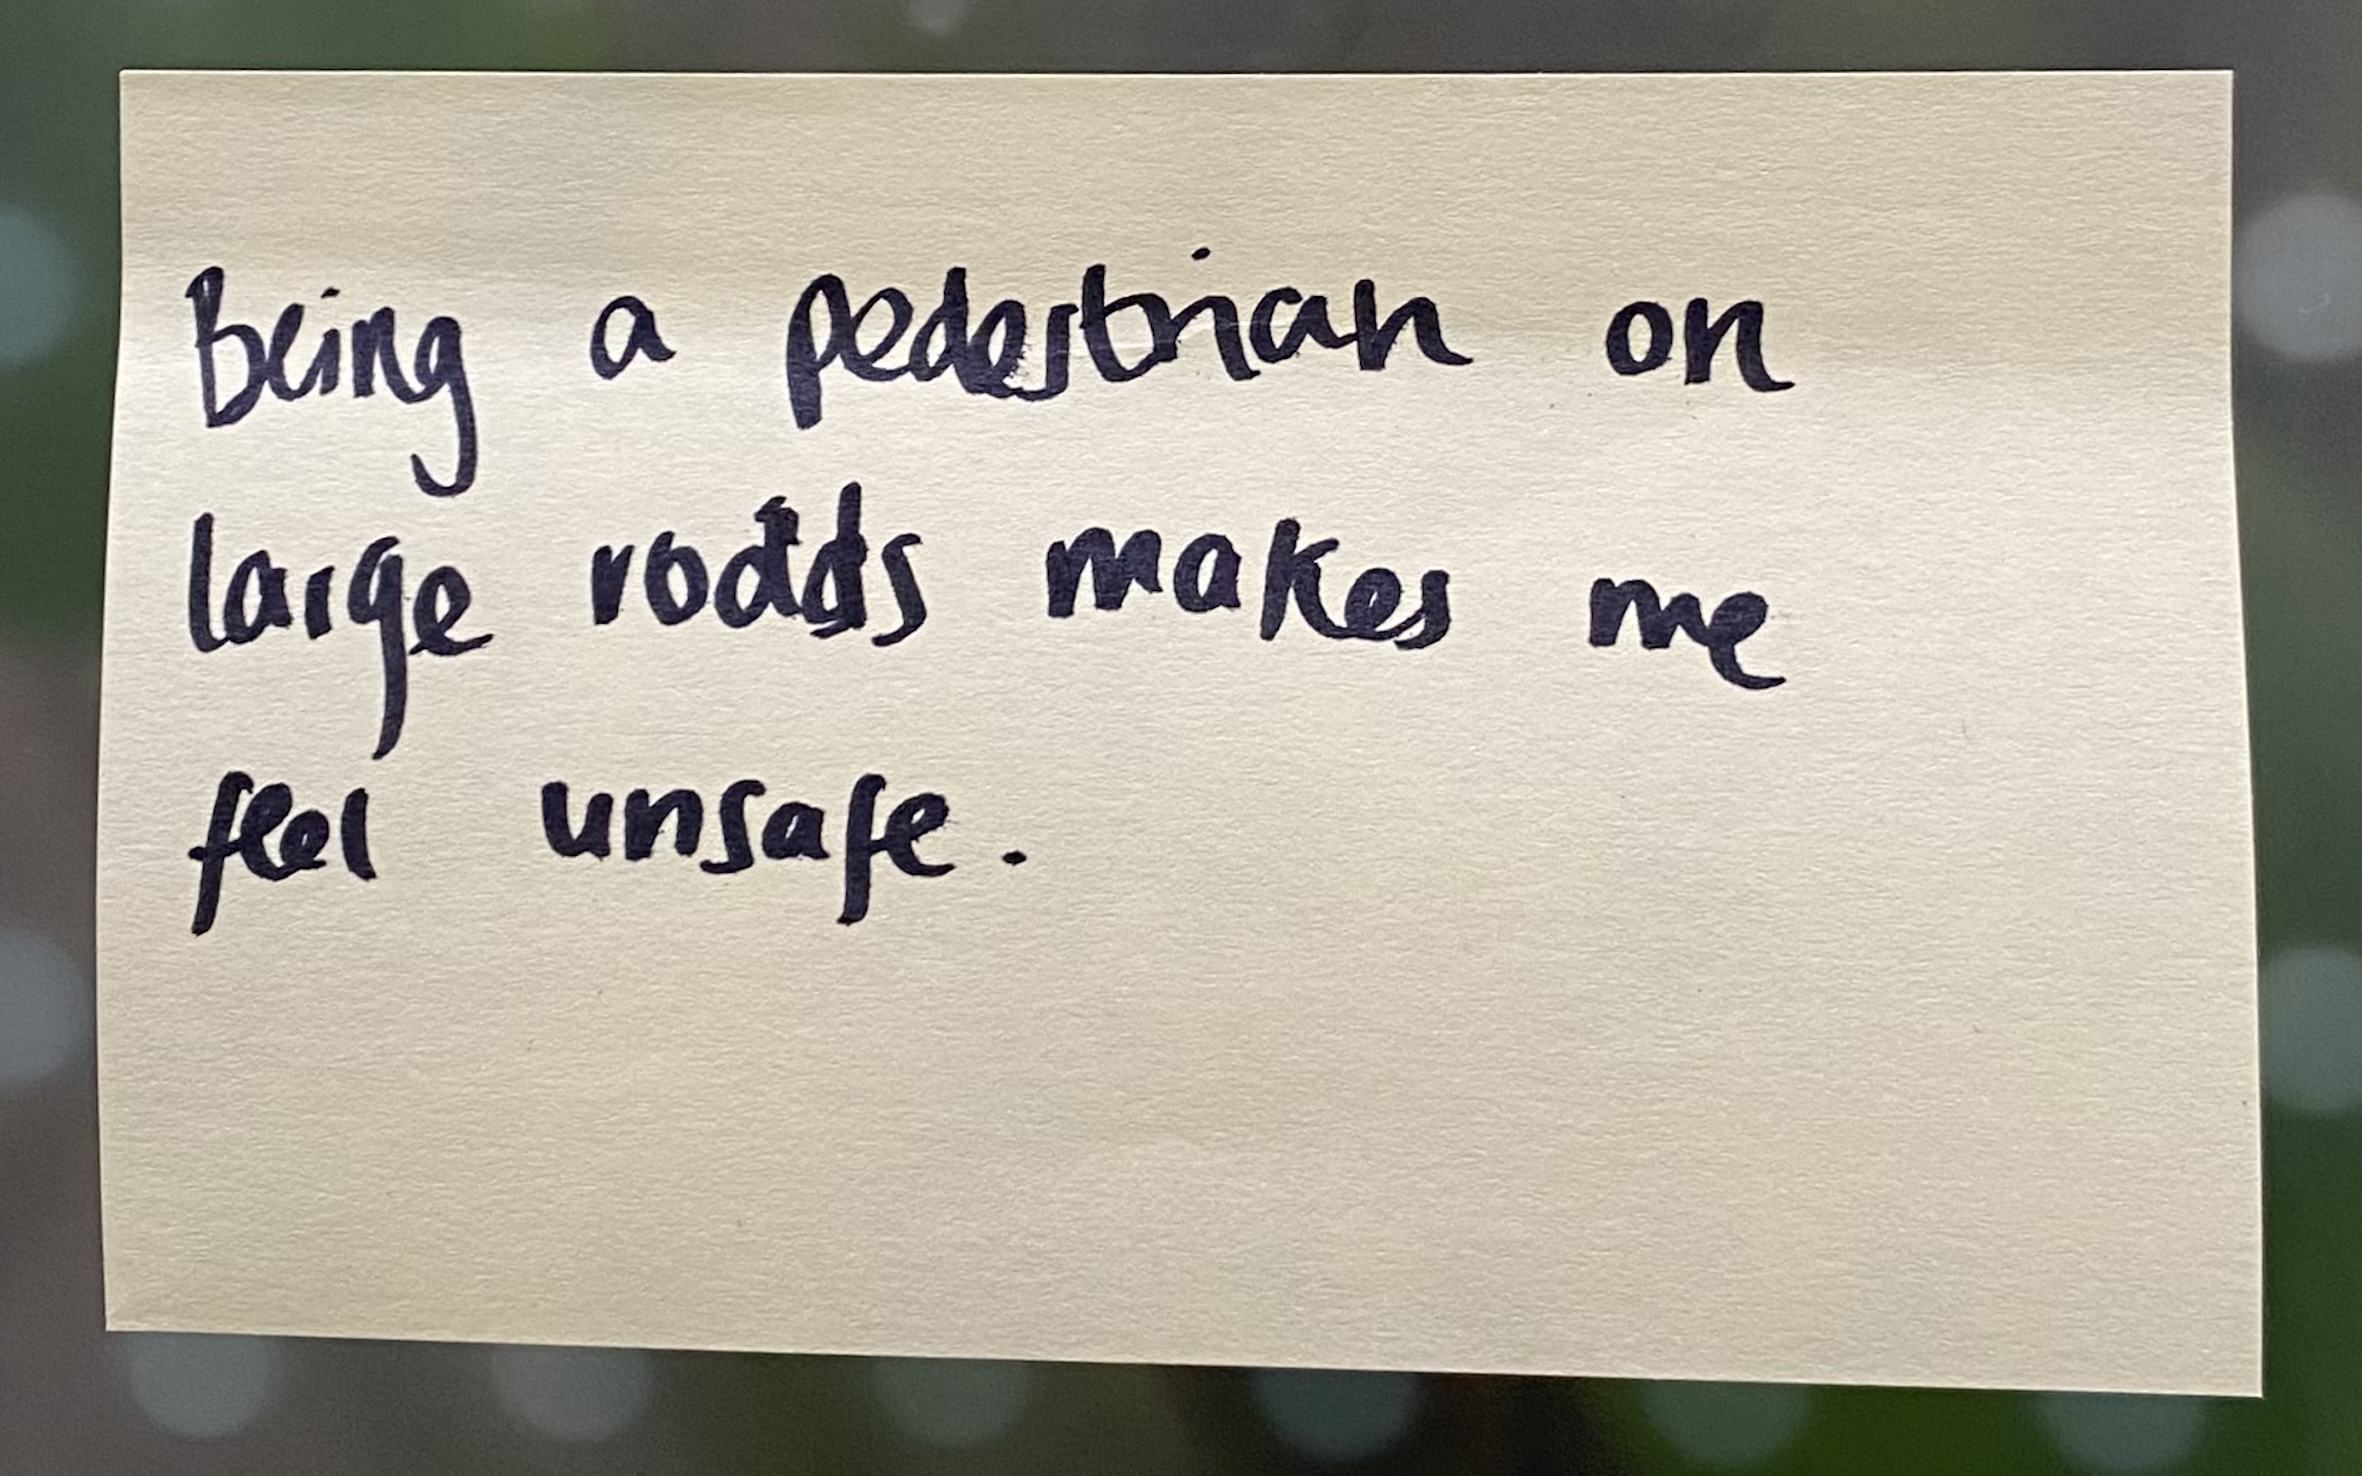 Being a pedestrian on
large roads makes me
feel unsafe.